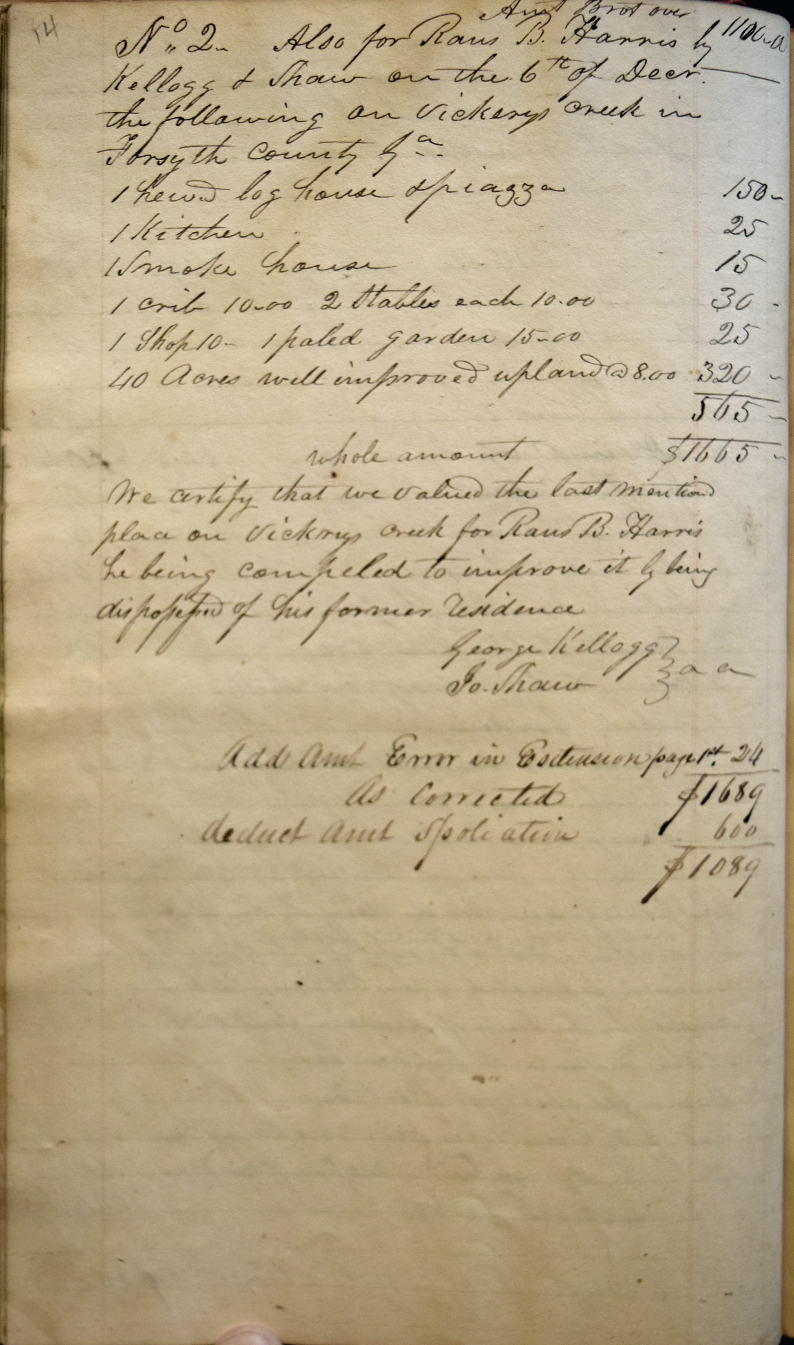 14
Amt Brot over 1100-00
No 2- Also for Raus B. Harris by
Kellogg & Shaw on the 6th of Decr.
the following on Vickerys creek in
Forsyth County Ga.
1 hewd log house & piazza 150-
1 Kitchen 25
1 Smoke house 15
1 crib 10.00 2 Stables each 10.00 30-
1 Shop 10- 1 paled garden 15-00 25
40 Acres well improved upland @ 8.00 320-
565-
whole amount $1665-
We certify that we valued the last mentiond
place on Vickrys creek for Raus B. Harris
he being compeled to improve it by being
dispossessed of his former residence
George Kellogg
Jo. Shaw } a a
Add Amt Error in Extension page 1st. 24
As Corrected $1689
deduct Amt Spoliation 600
$1089